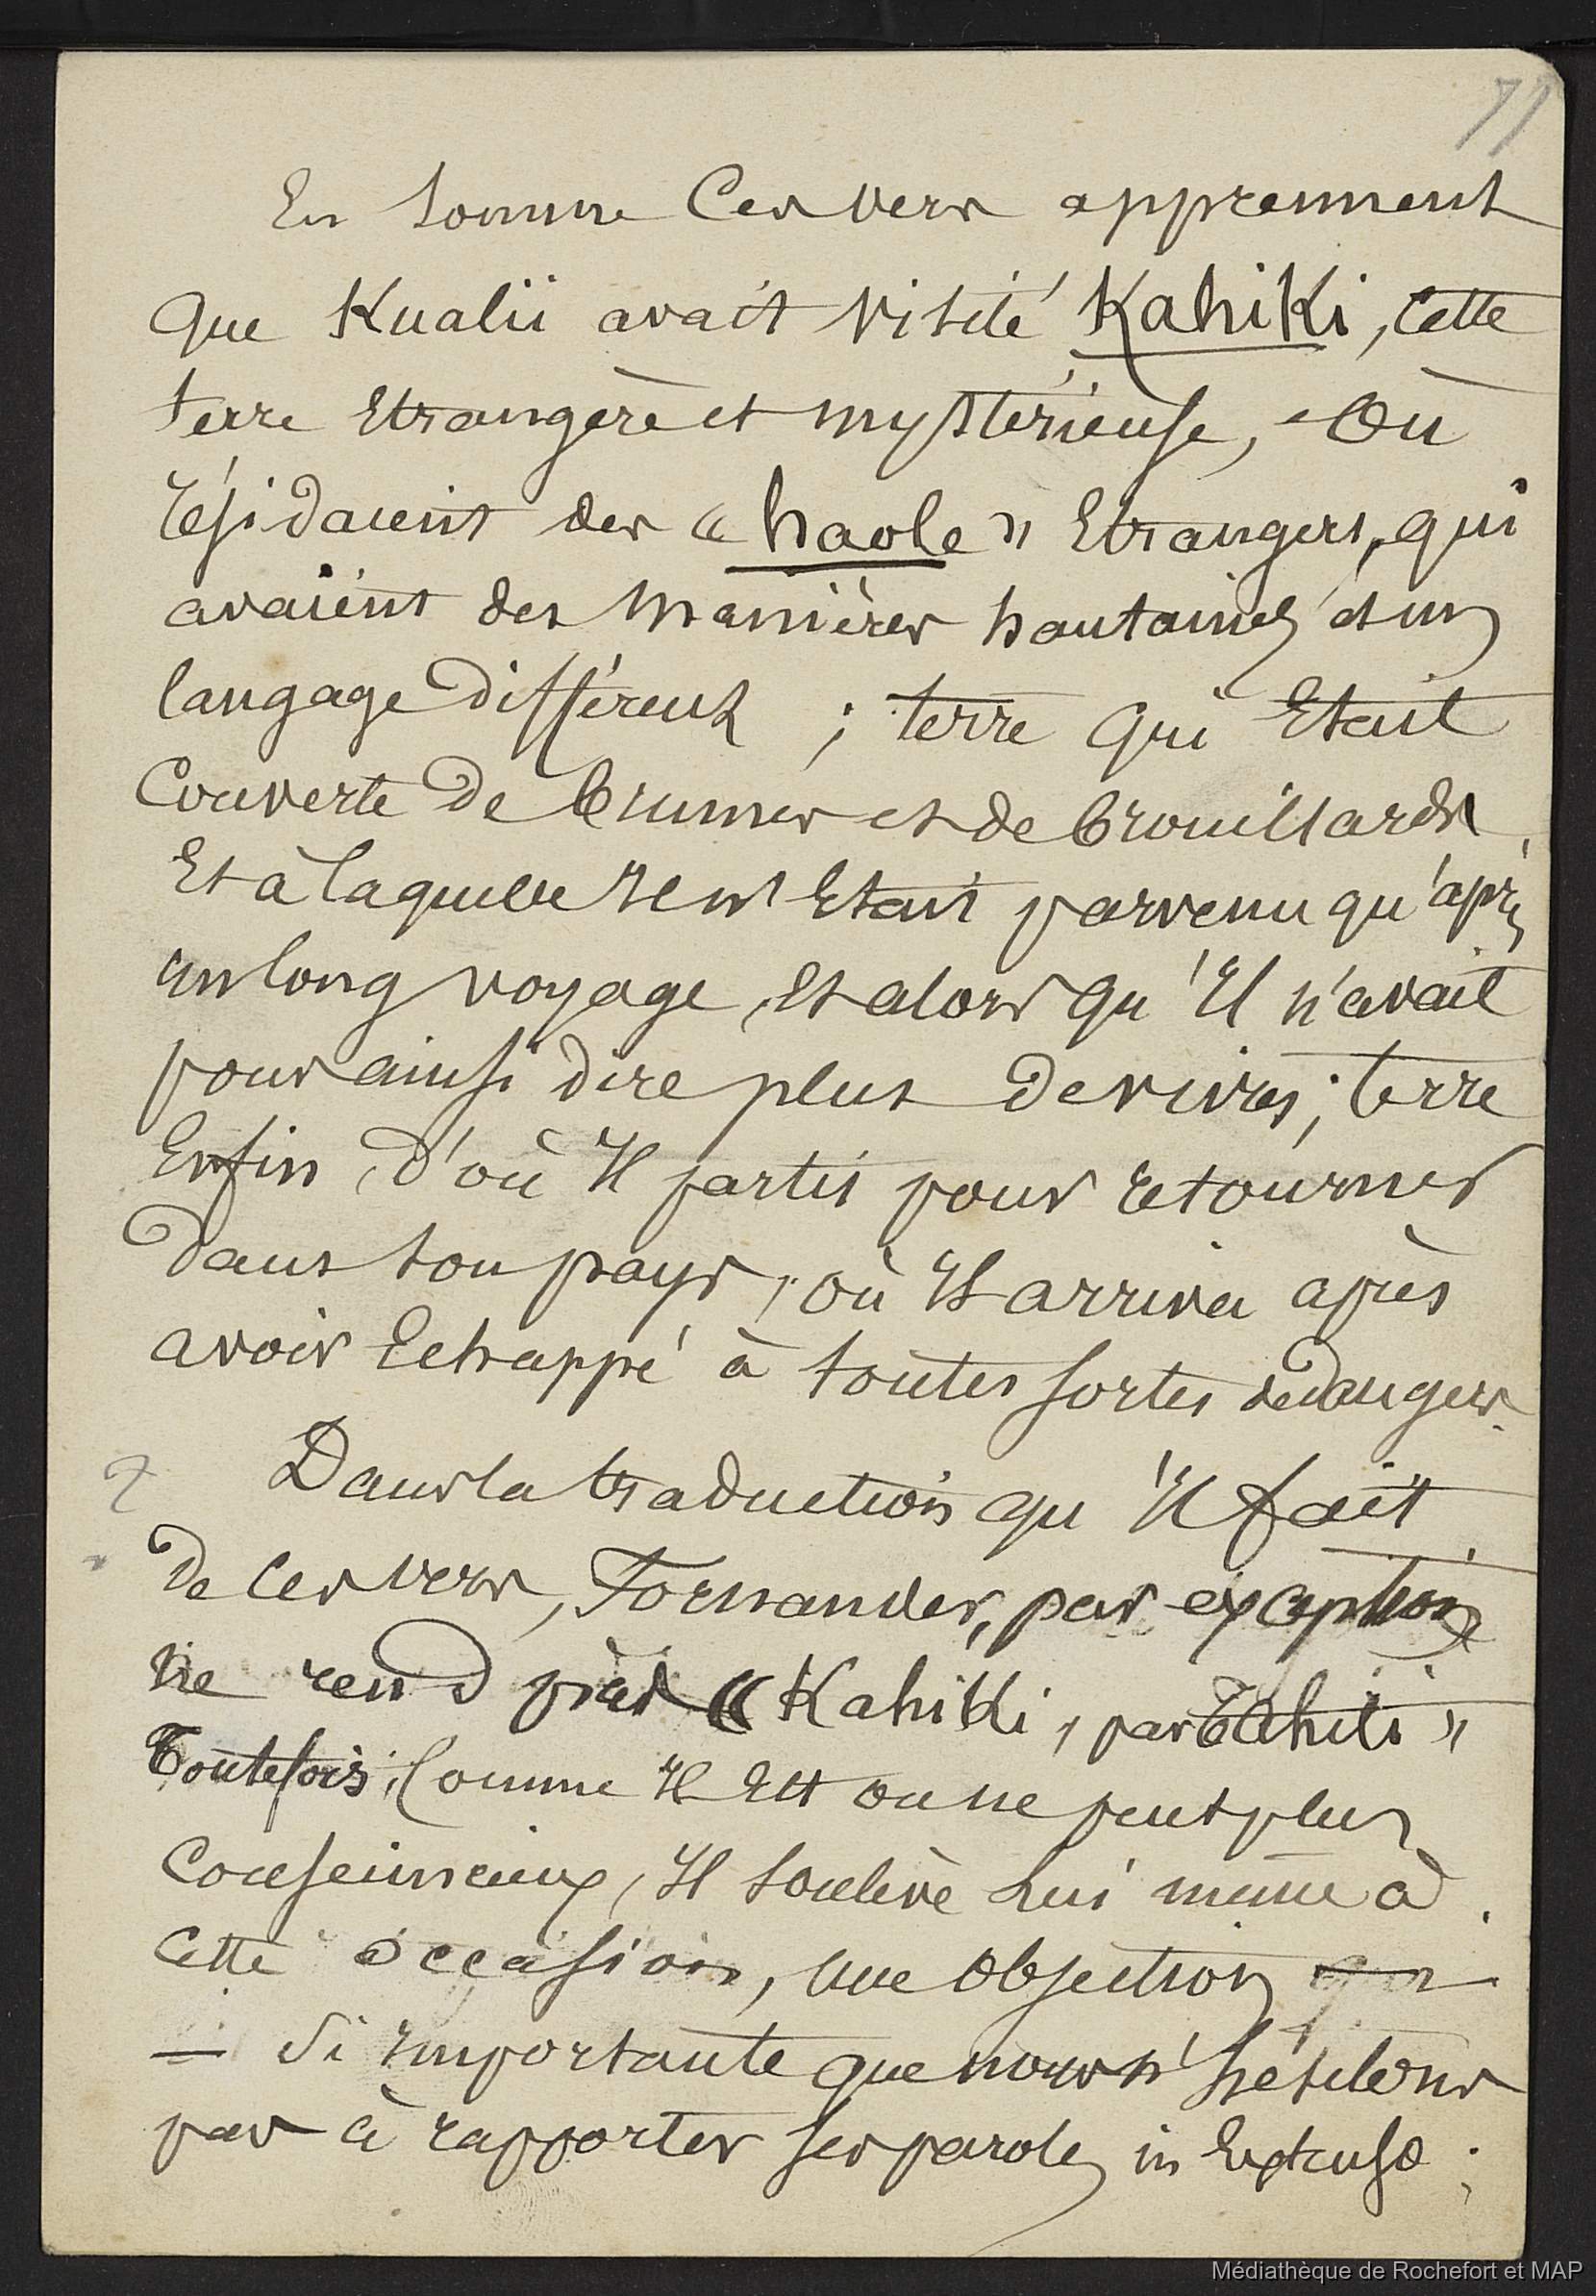 77
En somme ces vers apprennent
que Kualii avait visité Kahiki, cette
terre étrangère et mystérieuse, où
résidaient des « haole » étrangers, qui
avaient des manières hautaines et un
langage différent ; terre qui était
couverte de brumes et de brouillards
et à laquelle il n'était parvenu qu'après
un long voyage, et alors qu'il n'avait
pour ainsi dire plus de vivres ; terre
enfin, d'où il partit pour retourner
dans son pays, où il arriva après
avoir échappé à toutes sortes de dangers.
Dans la traduction qu'il fait
de ces vers, Fornander, par exception
ne rend pas « Kahiki, par Tahiti »
Toutefois, comme il est on ne peut plus
consciencieux, il soulève lui même à
cette occasion, une objection
si importante que nous n'hésitons
pas à rapporter ses paroles in extenso ;
Médiathèque de Rochefort et MAP